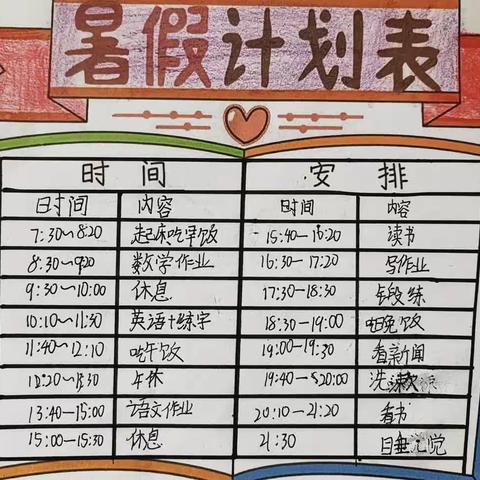 暑假计划表
时间 安排
日时间 内容 时间 内容
7:30~8:20 起床吃早饭 15:40-16:20 读书
8:30~9:20 数学作业 16:30-17:20 写作业
9:30~10:00 休息 17:30-18:30 锻练
10:10~11:30 英语+练字 18:30-19:00 吃晚饭
11:40~12:10 吃午饭 19:00-19:30 看新闻
12:20~13:30 午休 19:40-20:00 洗漱
13:40-15:00 语文作业 20:10-21:20 看书
15:00-15:30 休息 21:30 睡觉